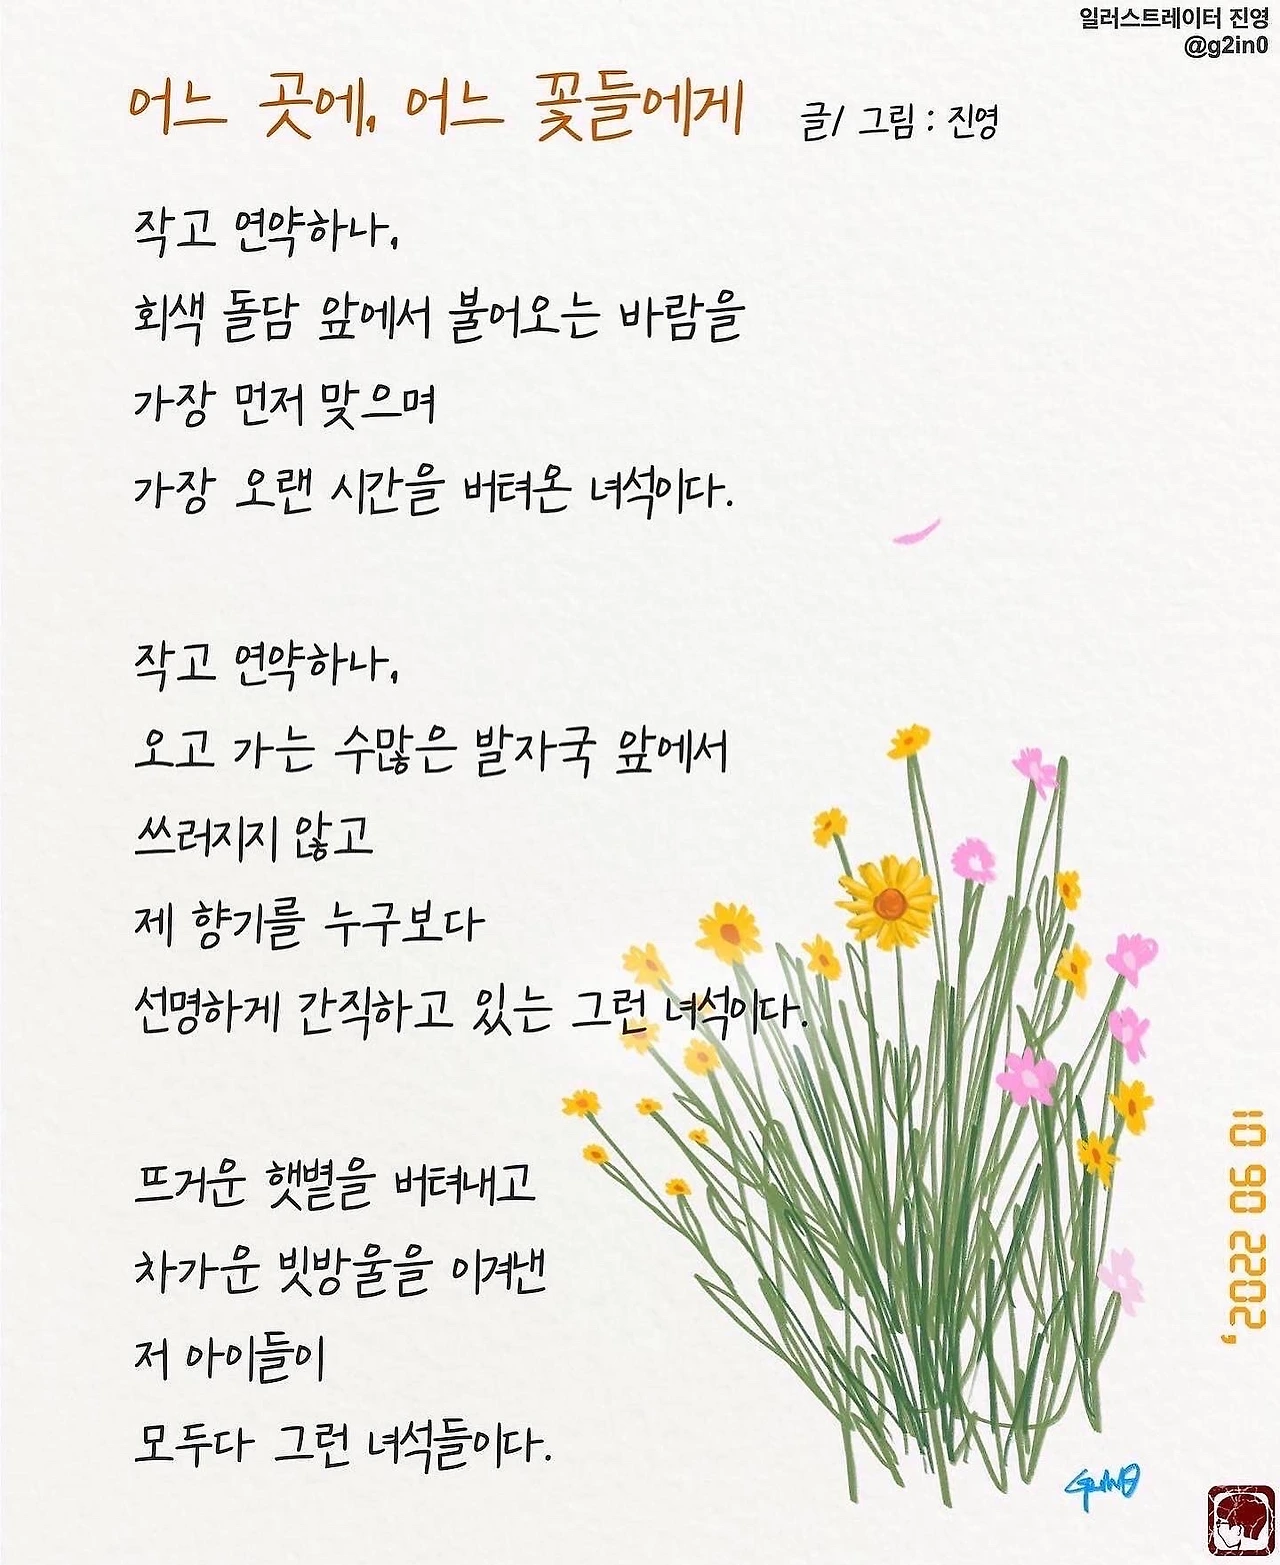 일러스트레이터 진영
@g2in0
어느 곳에, 어느 꽃들에게
글/ 그림 : 진영
작고 연약하나,
회색 돌담 앞에서 불어오는 바람을
가장 먼저 맞으며
가장 오랜 시간을 버텨온 녀석이다.
작고 연약하나,
오고 가는 수많은 발자국 앞에서
쓰러지지 않고
제 향기를 누구보다
선명하게 간직하고 있는 그런 녀석이다.
뜨거운 햇볕을 버텨내고
차가운 빗방울을 이겨낸
저 아이들이
모두다 그런 녀석들이다.
'2022 06 01
G2IN0